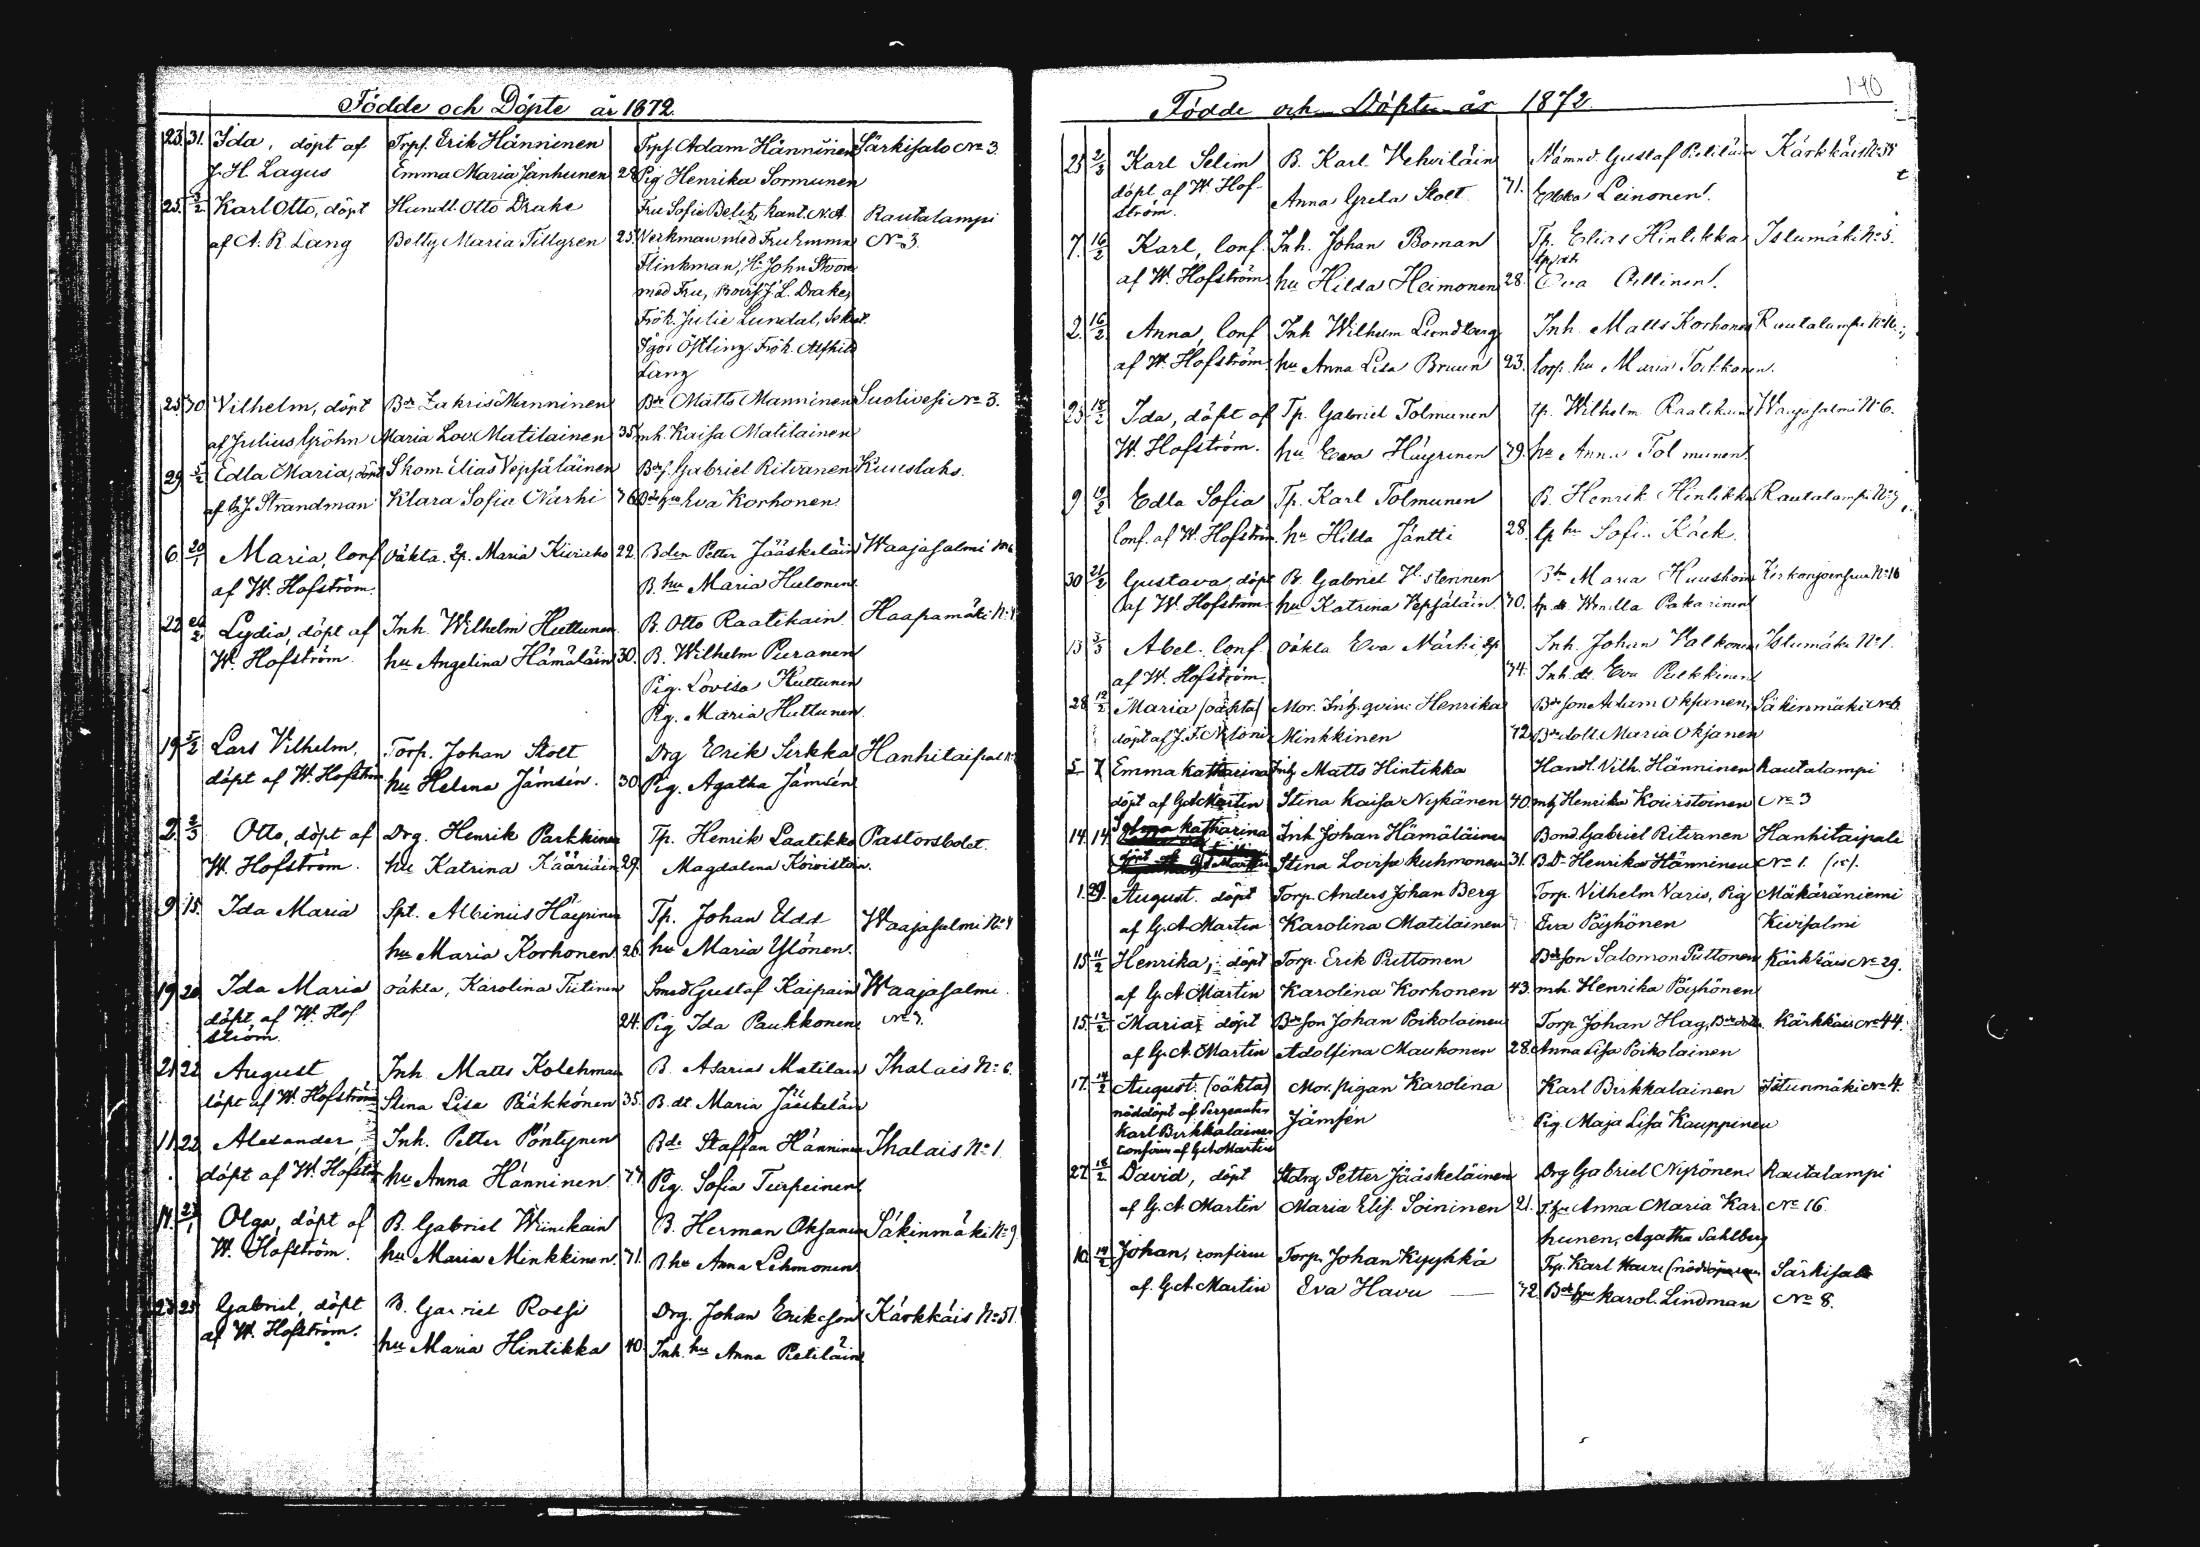 Födde och Döpte år 1872.
23. 31. Ida, döpt af Trpf. Erik Hänninen Trpf Adam Hänninen Särkisalo No 3.
J. H. Lagus Emma Maria Janhunen 28 Pig Henrika Sormunen
25. 2/2 Karl Otto, döpt Handl. Otto Drake Fru Sofie Belitz, kant. N. A. Rautalampi
af A. R. Lang Betty Maria Tillgren 25. Werkman med Fru Emma No 3.
Flinkman, Hr John Strom
med Fru, J. L. Drake,
Frök. Julie Lundal,
Östling. Frök. Alfhild
Lang
25. 30. Vilhelm, döpt Bdr Zakris Manninen Bdr Matts Manninen Suolivesi No 3.
af Julius Gröhn Maria Lov. Matilainen 35. inh. Kaisa Matilainen
29 Edla Maria, döpt Skom. Elias Vepsäläinen Bdrs. Gabriel Ritvanen Kuuslaks.
af G. J. Strandman Klara Sofia Närhi 76. Bde hu Eva Korhonen
6. 20/1 Maria, conf oäkta. Maria Kiviaho 22. Bden Petter Jääskeläin Waajasalmi
af W. Hofström. B. hu Maria Hulonen.
22 Lydia, döpt af Inh. Wilhelm Huttunen B. Otto Raatikain. Haapamäki No 4
W. Hofström. hu Angelina Hämäläin 30. B. Wilhelm Pieranen
Pig. Lovisa Huttunen
Pig. Maria Huttunen
19. 5/2 Lars Vilhelm, Torp. Johan Stolt Drg Erik Sirkka Hanhitaipal
döpt af W. Hofström hu Helena Jämsén. 30 Pig. Agatha Jämsén
2. 2/3 Otto, döpt af Drg. Henrik Parkkinen Tp. Henrik Laatikko Pastorsbolet.
W. Hofström. hu Katrina Kääriäin 29. Magdalena Koivistoin.
9. 15. Ida Maria Spt. Albinus Häyrinen Tp. Johan Udd Waajasalmi No 4
hu Maria Korhonen. 26. hu Maria Ylönen.
19 20 Ida Maria oäkta, Karolina Tiitinen Smed Gustaf Kaipain Waajasalmi
döpt af W. Hof 24. Pig Ida Paukkonen No 7.
ström.
21 22 August Inh. Matts Kolehmain B. Asarias Matilain Thalais No 6.
döpt af W. Hofström Stina Lisa Pääkkönen 35. B. dt Maria Jääskeläin
11. 22 Alexander, Inh. Petter Pöntynen Bde Staffan Hänninen Thalais No 1.
döpt af W. Hofström hu Anna Hänninen. 77 Pig. Sofia Turpeinen
14. Olga, döpt af B. Gabriel Wiinikain B. Herman Oksanen Säkinmäki No 9
W. Hofström. hu Maria Minkkinen. 71. B. hu Anna Lehmonen
23 25 Gabriel, döpt B. Gabriel Rossi Drg. Johan Ericsson Kärkkäis No 51.
af W. Hofström. hu Maria Hintikka 40. Inh. hu Anna Pietiläin
Födde och Döpte år 1872. 190
25 2/3 Karl Selim B. Karl Vehviläin Nämnd. Gustaf Pietiläin Kärkkäis No 58
döpt af W. Hof- Anna Greta Stolt 71. Leinonen.
ström.
7. 16/2 Karl, conf. Inh. Johan Boman Tp. Elias Hintikka Istumäki No 5.
af W. Hofström hu Hilda Heimonen 28. Eva
2. 16/2 Anna, conf Inh Wilhelm Lundberg Inh. Matts Korhonen Rautalampi No 16.
af W. Hofström hu Anna Lisa Bruun 23. torp. hu Maria Tarkkonen.
23. 18/2 Ida, döpt af Tp. Gabriel Tolmunen tp. Wilhelm Raatikain Waajasalmi No 6.
W. Hofström. hu Eeva Häyrinen 79. hu Anna Tolmunen.
9 Edla Sofia Tp. Karl Tolmunen B. Henrik Hintikka Rautalampi
conf. af W. Hofström. hu Hilda Jäntti 28. tp hu Sofia Käck.
30 Gustava, döpt B. Gabriel Maria Huuskoin No 16
af W. Hofström hu Katrina Vepsäläin 70. Pakarinen
13 3/3 Abel. conf. oäkta Eva Närhi Inh. Johan Valkonen Istumäki No 1.
af W. Hofström. 74. Inh. dt. Eva Pulkkinen
28 12/2 Maria (oäkta) Mor. Inhs. qvin. Henrika Bdr son Adam Oksanen, Säkinmäki
döpt af J. F. Minkkinen 72 Bdr dott Maria Oksanen
5 7 Emma Katharina Inhs Matts Hintikka Handl. Vilh. Hänninen Rautalampi
döpt af G. A. Martin Stina Kaisa Nykänen 40. Henrika Koivistoinen No 3
14. 14 Katharina Inh Johan Hämäläinen Bond. Gabriel Ritvanen Hanhitaipale
Stina Lovisa Kuhmonen 31. Henrika Hänninen No 1.
1. 29. August. döpt Torp. Anders Johan Berg Torp. Vilhelm Varis, Pig Mäkäräniemi
af G. A. Martin Karolina Matilainen Eva Pöyhönen Kivisalmi
15 11/2 Henrika, döpt Torp. Erik Puttonen Bdr son Salomon Puttonen Kärkkäis No 29.
af G. A. Martin Karolina Korhonen 43. inh. Henrika Pöyhönen
15. 12/2 Maria, döpt Bdr son Johan Poikolainen Torp. Johan Hag, Kärkkäis No 44.
af G. A. Martin Adolfina Maukonen 28. Anna Lisa Poikolainen
17. August. (oäkta) Mor. pigan Karolina Karl Birkkalainen Istunmäki No 4.
nöddöpt af Sergeanten Jämsén Pig. Maja Lisa Kauppinen
Karl Birkkalainen
confirm af G. A. Martin
27. David, döpt Stdrg Petter Jääskeläinen Drg Gabriel Nyrönen Rautalampi
af G. A. Martin Maria Elis. Soininen 21. Anna Maria Kar- No 16.
hunen, Agatha Sahlberg
10. 14/2 Johan, confirm Torp. Johan Kypykkä Torp. Karl Särkisalo
af G. A. Martin Eva Havu 72. Karol. Lindman No 8.